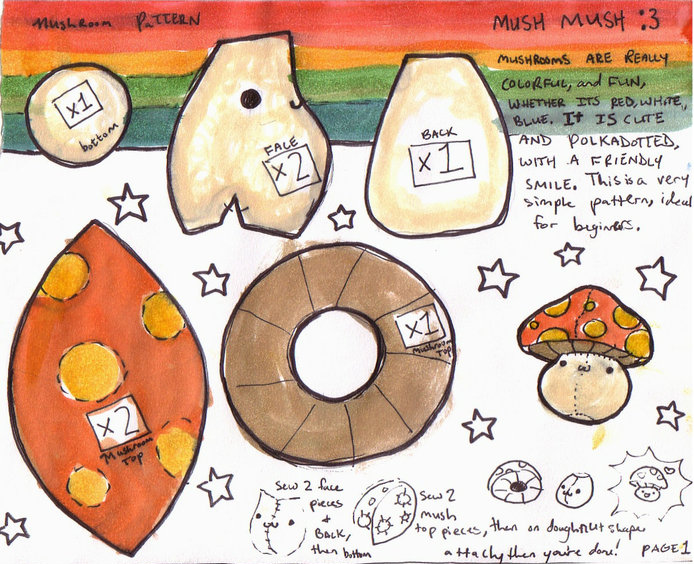 Mushroom Pattern
MUSH MUSH :3
MUSHROOMS ARE REALLY
COLORFUL, and FUN,
WHETHER ITS RED, WHITE,
BLUE. It IS CUTE
AND POLKADOTTED,
WITH A FRIENDLY
SMILE. This is a very
simple pattern, ideal
for beginners.
x1
bottom
FACE
x2
BACK
x1
x2
Mushroom
Top
x1
Mushroom
Top
Sew 2 face
pieces
+
BACK,
then bottom
Sew 2
mush
top pieces, then on doughnut shape
attach, then you're done!
PAGE 1